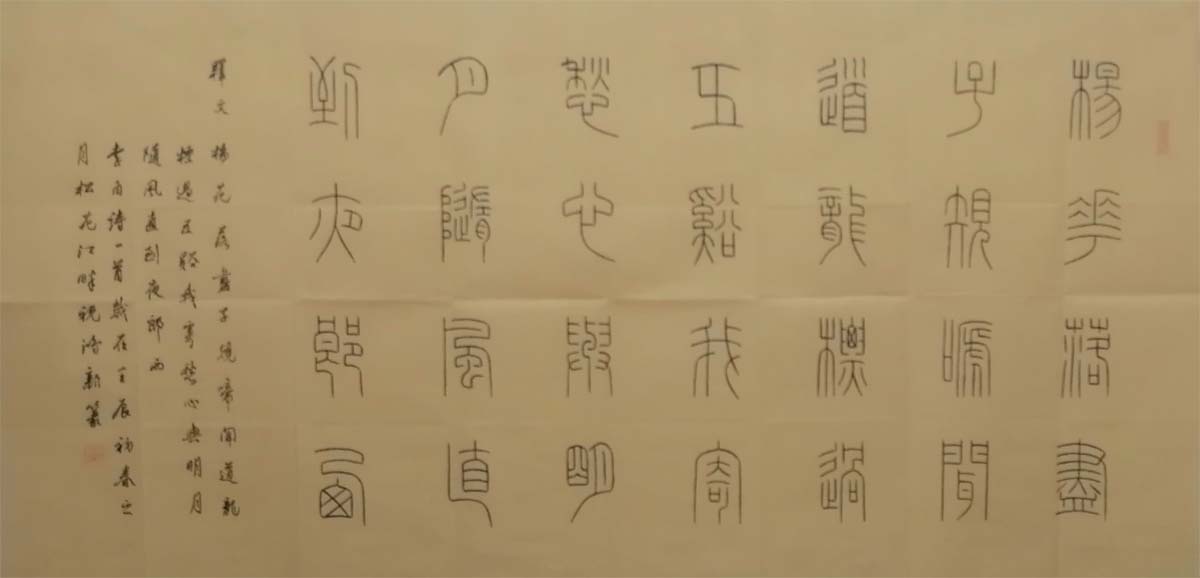 楊花落盡
子規啼聞
道龍標過
五谿我寄
愁心與明
月隨風直
到夜郎西
釋文
楊花落盡子規啼聞道龍
標過五谿我寄愁心與明月
隨風直到夜郎西
李白詩一首歲在壬辰初春之
月松花江畔祝濤新篆